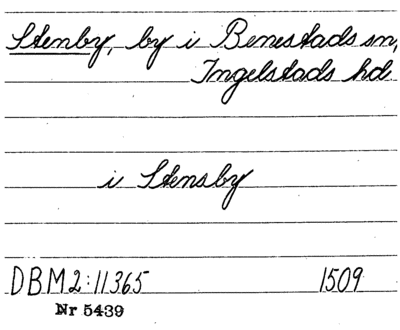 Stenby, by i Benestads sn,
Ingelstads hd
i Stensby
DBM2:11365 1509
Nr 5439